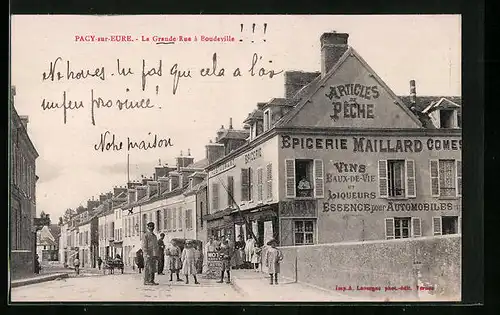 PACY-sur-EURE. - La Grande Rue à Boudeville
!!!
! !
pas que cela a l'air
un peu province!
Notre maison
ARTICLES
DE
PÊCHE
EPICERIE MAILLARD COMES
EPICERIE
VINS
EAUX-DE-VIE
ET
LIQUEURS
ESSENCE pour AUTOMOBILES
Imp. A. Lavergne phot. édit. Vernon